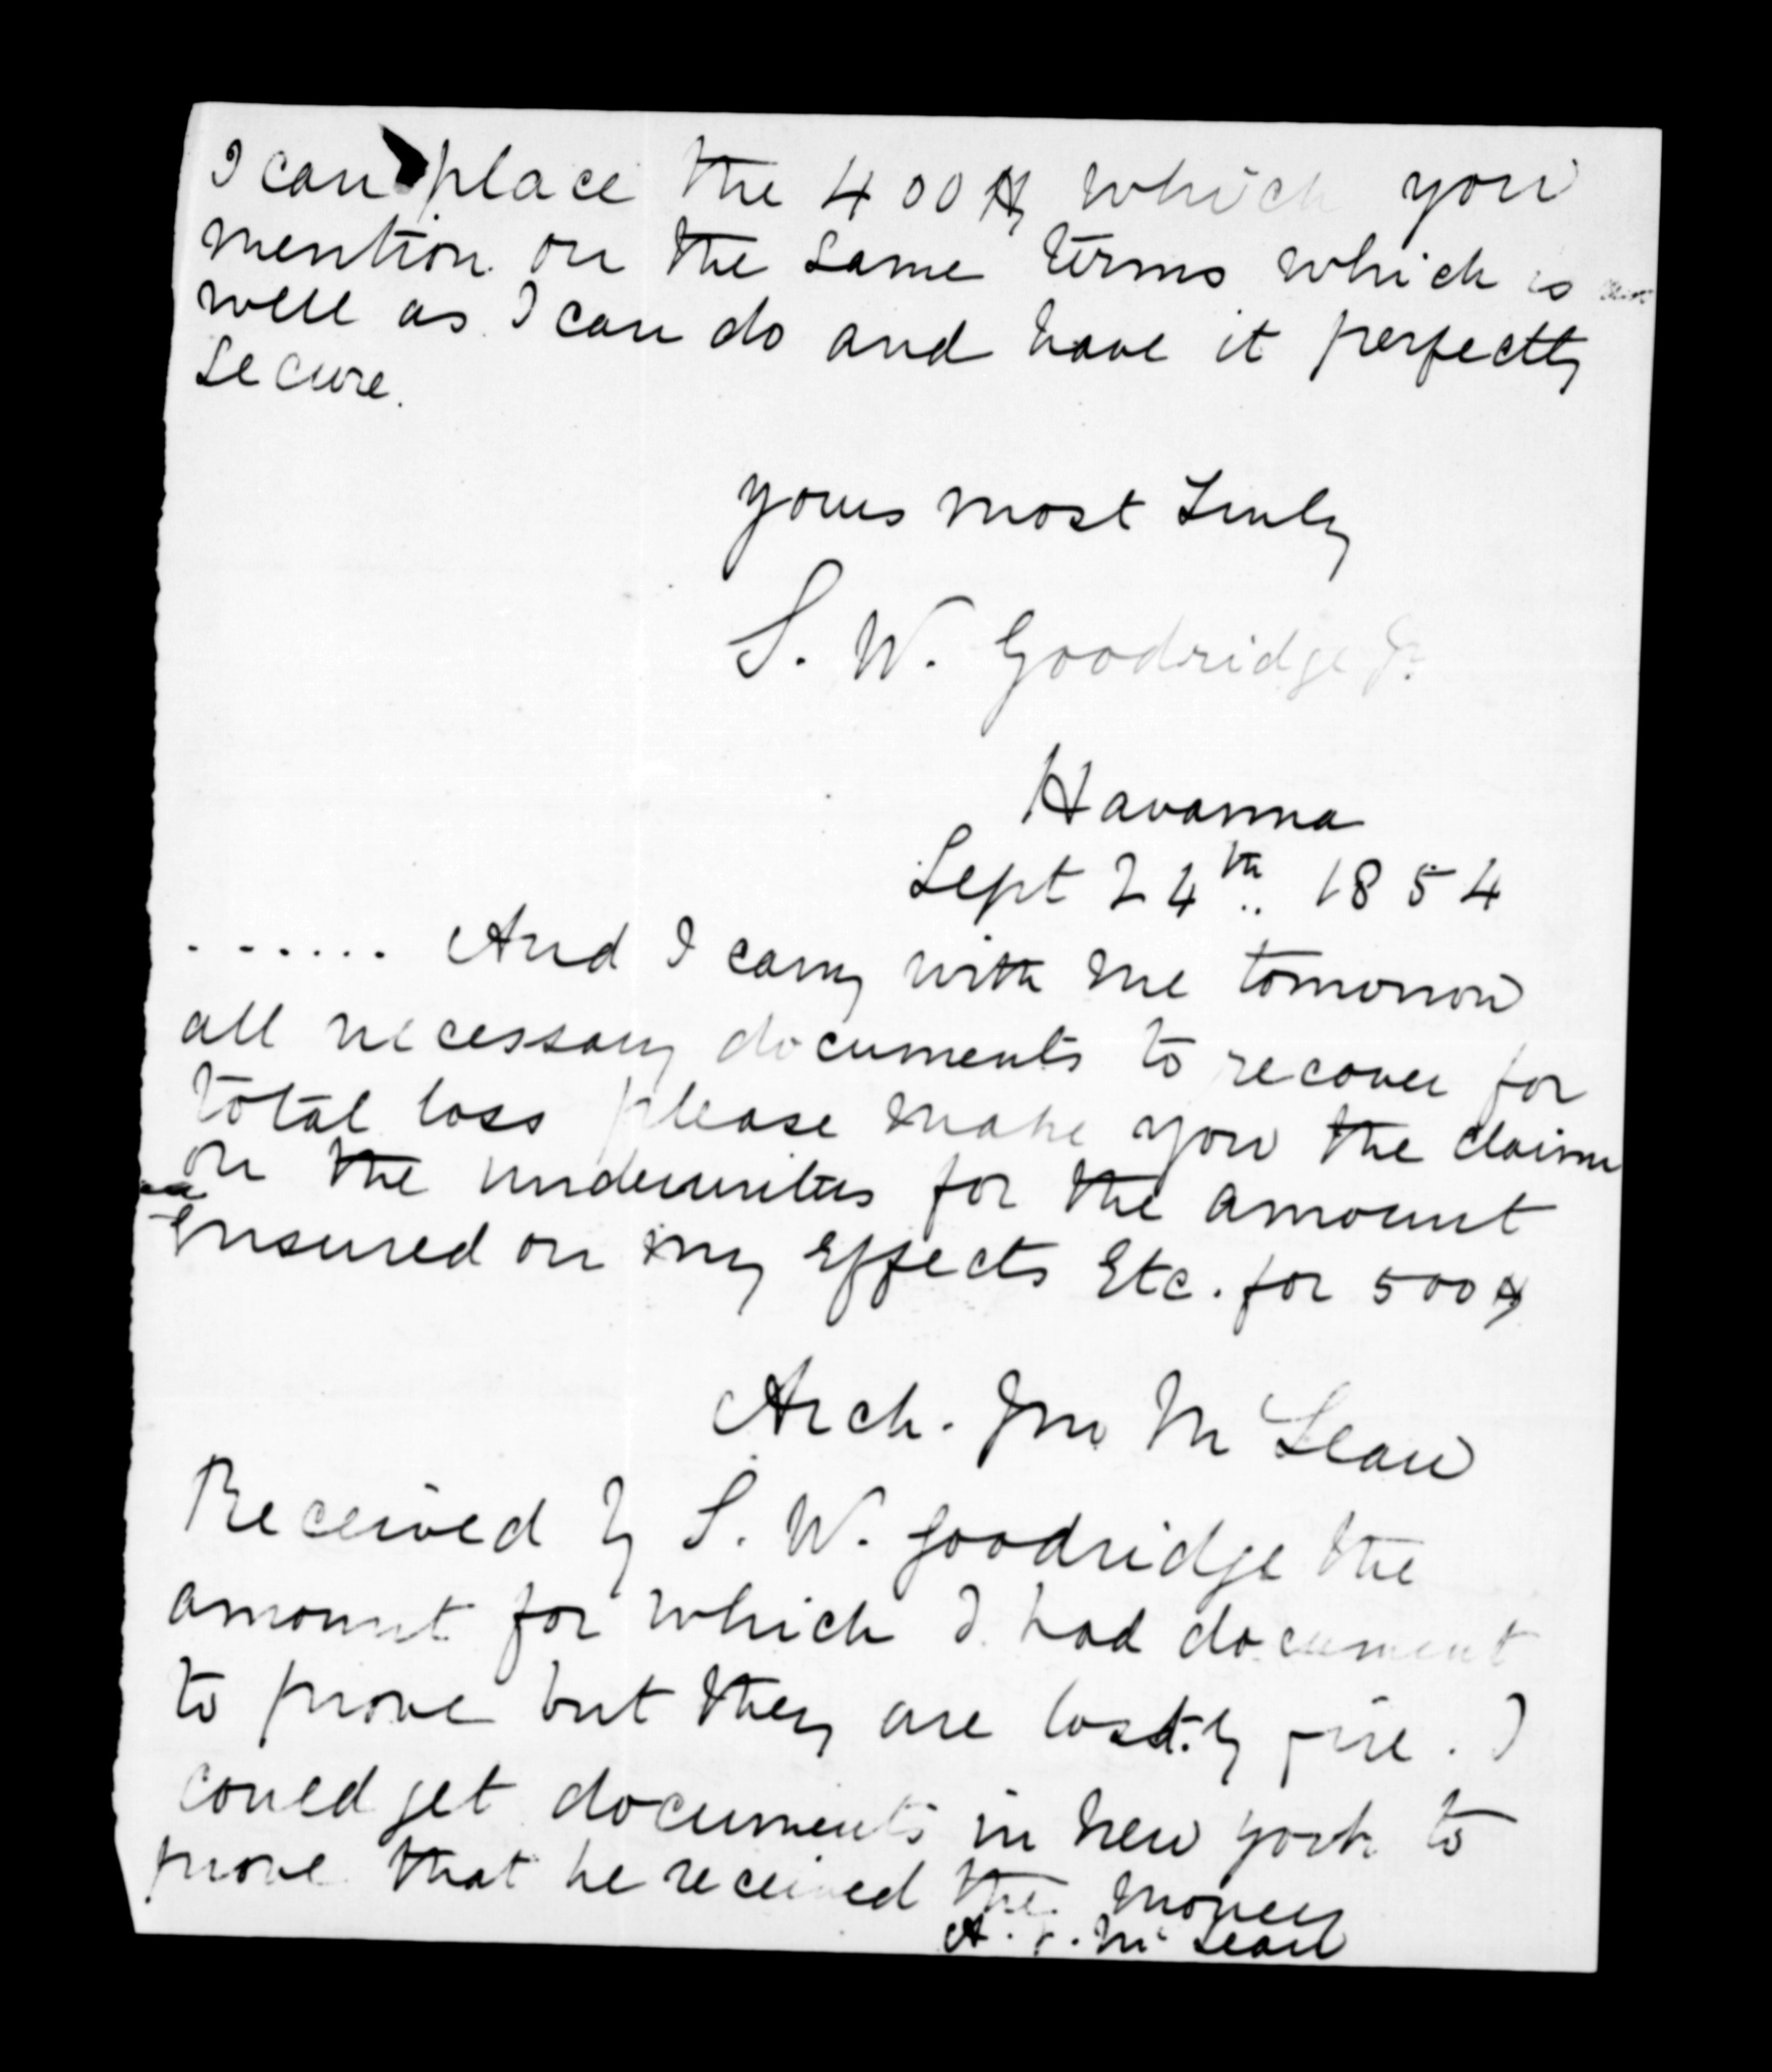 I can place the 400$ which you
mention on the same terms which is as
well as I can do and have it perfectly
secure.
yours most truly
S. W. Goodridge Jr.
Havanna
Sept 24th. 1854
...... And I carry with me tomorrow
all necessary documents to recover for
total loss please make you the claim
on the underwriters for the amount
ensured on my effects Etc. for 500$
Arch. Jno McLean
Received by S. W. Goodridge the
amount for which I had document
to prove but they are lost by fire. I
could get documents in New York to
prove that he received the money
A. J. McLean